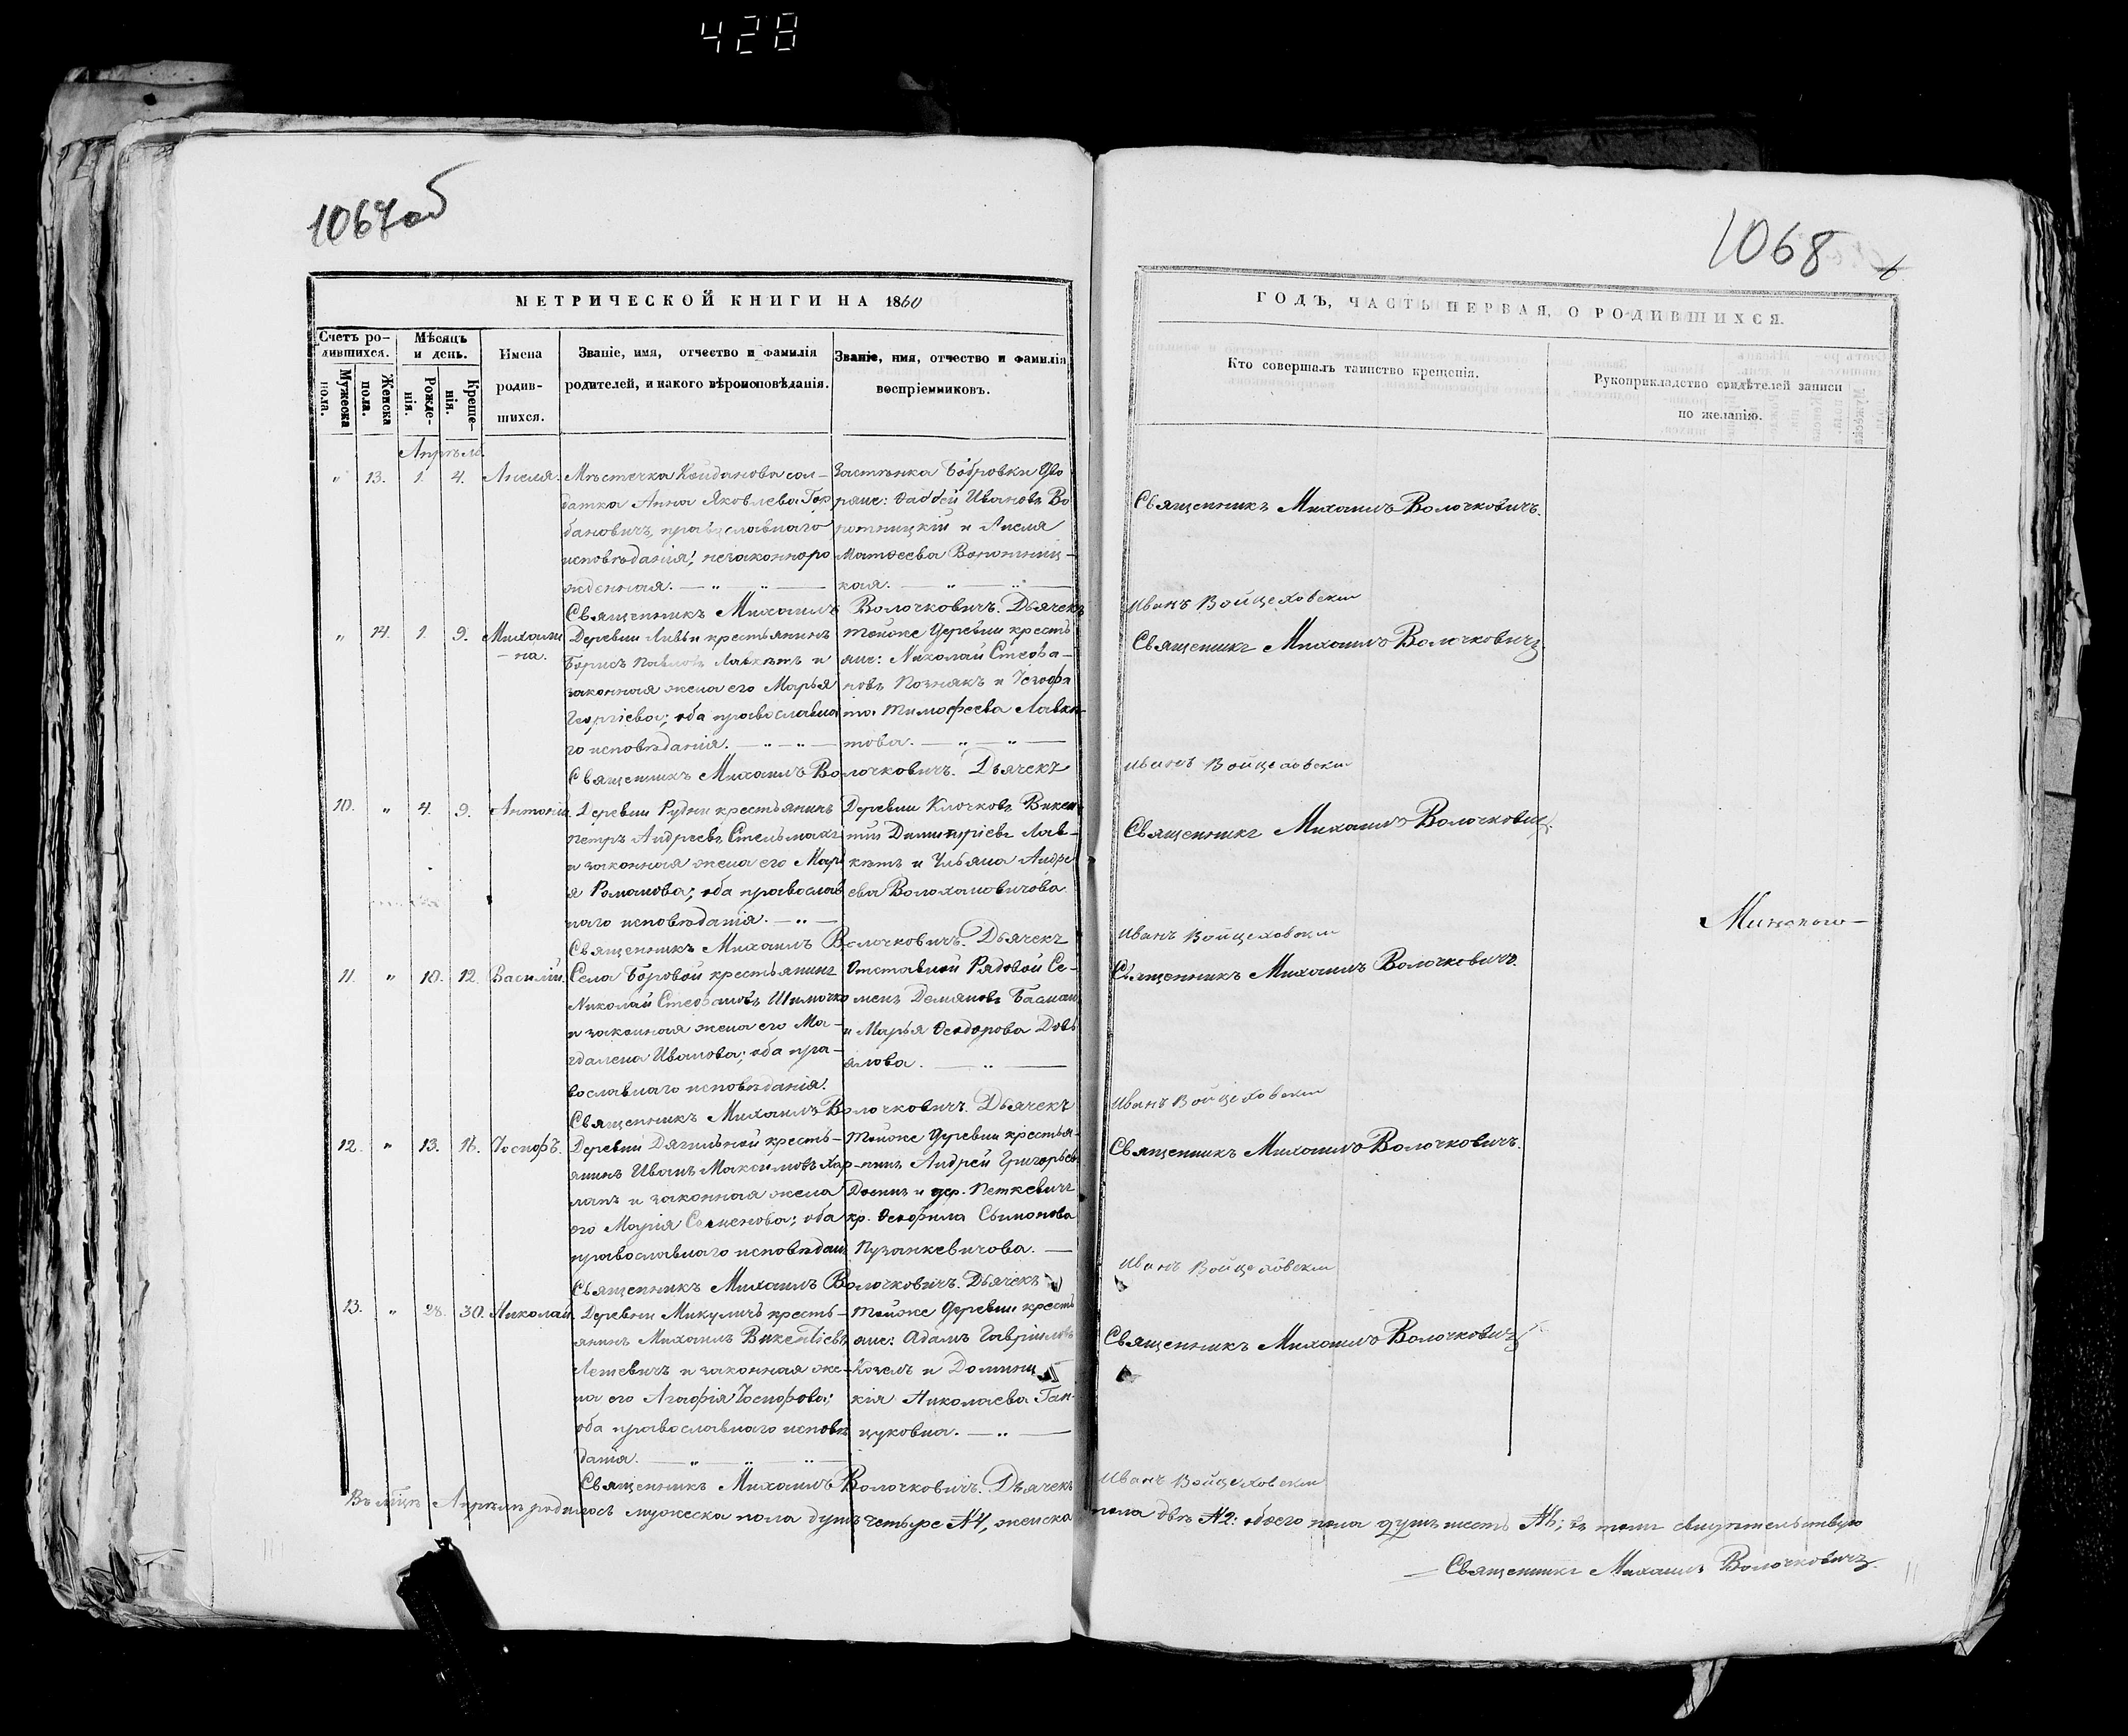 428
1067об
1068
6
МЕТРИЧЕСКОЙ КНИГИ НА 1860
ГОДЪ, ЧАСТЬ ПЕРВАЯ, О РОДИВШИХСЯ.
Счетъ ро-
дившихся.
Мужеска
пола.
Женска
пола.
Мѣсяцъ
и день.
Рожде-
нія.
Креще-
нія.
Имена
родив-
шихся.
Званіе, имя, отчество и фамилія
родителей, и какого вѣроисповѣданія.
Званіе, имя, отчество и фамилія
воспріемниковъ.
Кто совершалъ таинство крещенія.
Рукоприкладство свидѣтелей записи
по желанію.
Апрѣль.
" 13. 1. 4. Анеля.
Мѣстечка Койданова сол-
датка Анна Яковлева Гор
бановичъ, православнаго
исповѣданія; незаконноро
жденная. — " — " —
Застѣнка Бобровки Дво
ряне: Фаддей Ивановъ Во
ротницкій и Анеля
Матѳеева Воротниц-
кая. — " — " —
Священникъ Михаилъ Волочковичъ.
Священникъ Михаилъ Волочковичъ. Дьячекъ Иванъ Войцеховскій
" 14. 1. 9. Михали
на.
Деревни Ливьи крестьянинъ
Борисъ Павловъ Лавкетъ и
законная жена его Марья
Георгіева; оба православна
го исповѣданія. — " — " —
Тойже Деревни кресть
яне: Николай Стефа-
новъ Познякъ и Іезофа
та Тимофеева Лавке-
това. — " — " —
Священникъ Михаилъ Волочковичъ.
Священникъ Михаилъ Волочковичъ. Дьячекъ Иванъ Войцеховскій
10. " 4. 9. Антоній.
Деревни Рудни крестьянинъ
Петръ Андреевъ Стельмахъ
и законная жена его Мар
я Романова; оба православ
наго исповѣданія. — " —
Деревни Клочковъ Викен
тій Димитріевъ Лав-
кетъ и Ульяна Андре
ева Волохановичова.
Священникъ Михаилъ Волочковичъ.
Священникъ Михаилъ Волочковичъ. Дьячекъ Иванъ Войцеховскій
Минского —
11. " 10. 12. Василій.
Села Боровой крестьянинъ
Николай Стефановъ Шимочко
и законная жена его Ма-
гдалена Иванова; оба пра-
вославнаго исповѣданія.
Отставной Рядовой Се-
менъ Демяновъ Басман
и Марья Ѳеодорова Довь
ялова. — " —
Священникъ Михаилъ Волочковичъ.
Священникъ Михаилъ Волочковичъ. Дьячекъ Иванъ Войцеховскій
12. " 13. 16. Іосифъ.
Деревни Дягильной кресть-
янинъ Иванъ Максимовъ Хар-
ланъ и законная жена
его Марія Семенова; оба
православнаго исповѣдан
Тойже Деревни крестья-
нинъ Андрей Григорьев
и дер. Петкевичъ
кр. Ѳеофила Сымонова
Пузанкевичова. —
Священникъ Михаилъ Волочковичъ.
Священникъ Михаилъ Волочковичъ. Дьячекъ Иванъ Войцеховскій
13. " 28. 30. Николай.
Деревни Микуличъ кресть-
янинъ Михаилъ Викентіевъ
Летевичъ и законная же-
на его Агафія Іосифова;
оба православнаго исповѣ
данія. — " — " — " —
Тойже Деревни кресть
яне: Адамъ Гавріиловъ
Козелъ и Доминиц
кія Николаева Ган-
цуковна. — " —
Священникъ Михаилъ Волочковичъ
Священникъ Михаилъ Волочковичъ. Дьячекъ Иванъ Войцеховскій
Въ мѣцѣ Апрѣлѣ родилось мужеска пола душъ четыре №4, женска пола двѣ №2: обоего пола душъ шесть №6; въ томъ свидѣтельствую
— Священникъ Михаилъ Волочковичъ